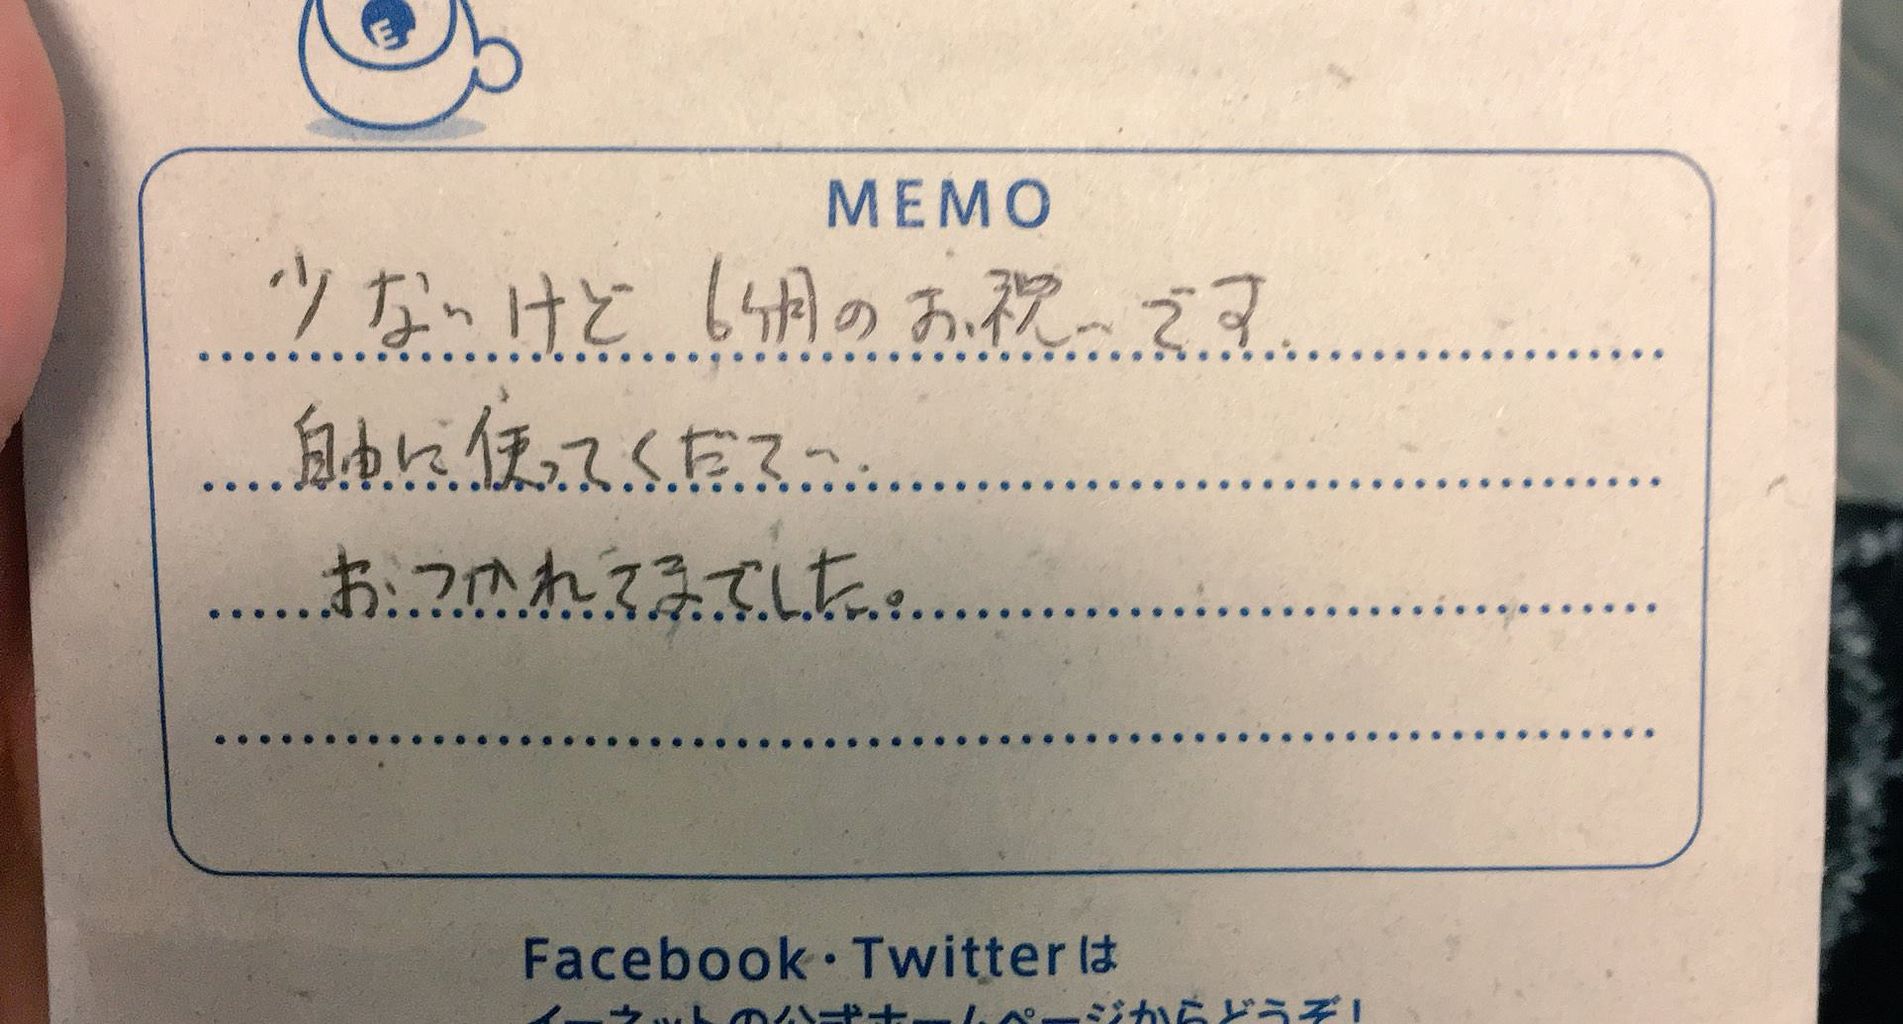 E
MEMO
少ないけど 6ヶ月のお祝いです.
自由に使ってください.
おつかれさまでした。
Facebook・Twitterは
イーネットの公式ホームページからどうぞ!